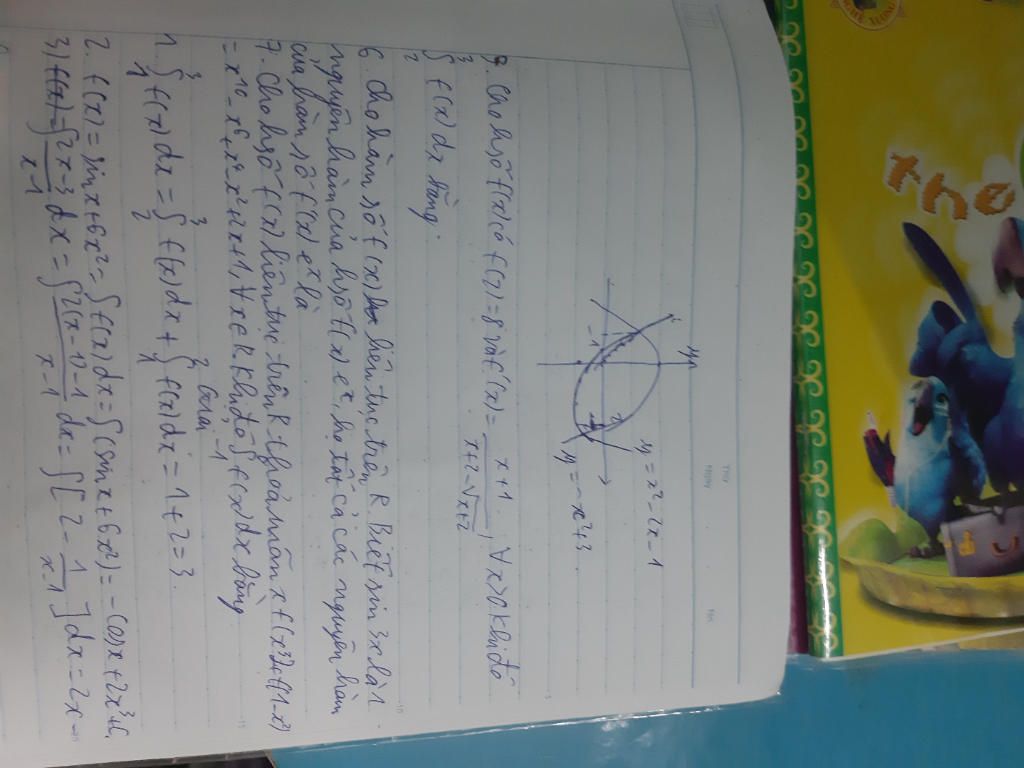 y
y = x² - 2x - 1
-1
2
y = -x² + 3
9. Cho hsố f(x) có f(2) = 8 và f'(x) = \frac{x+1}{x+2-\sqrt{x+2}}, ∀x>0. Khi đó
∫₂³ f(x) dx bằng:
6. Cho hàm số f(x) liên tục trên R. Biết sin 3x là 1
nguyên hàm của hsố f(x) eˣ, họ tất cả các nguyên hàm
của hàm số f'(x) eˣ là
7. Cho hsố f(x) liên tục trên R thỏa mãn x f(x³) + f(1-x²)
= -x¹⁰ - x⁶ + x⁴ - x² + 2x + 1, ∀x ∈ R. Khi đó ∫ f(x) dx bằng
Giải
1. ∫₁³ f(x) dx = ∫₂³ f(x) dx + ∫₁² f(x) dx = 1 + 2 = 3
2. f(x) = sin x + 6x² = ∫ f(x) dx = ∫ (sin x + 6x²) = -cos x + 2x³ + C
3) f(x) = ∫ \frac{2x-3}{x-1} dx = ∫ \frac{2(x-1)-1}{x-1} dx = ∫ [2 - \frac{1}{x-1}] dx = 2x -
THỨ
NGÀY
the